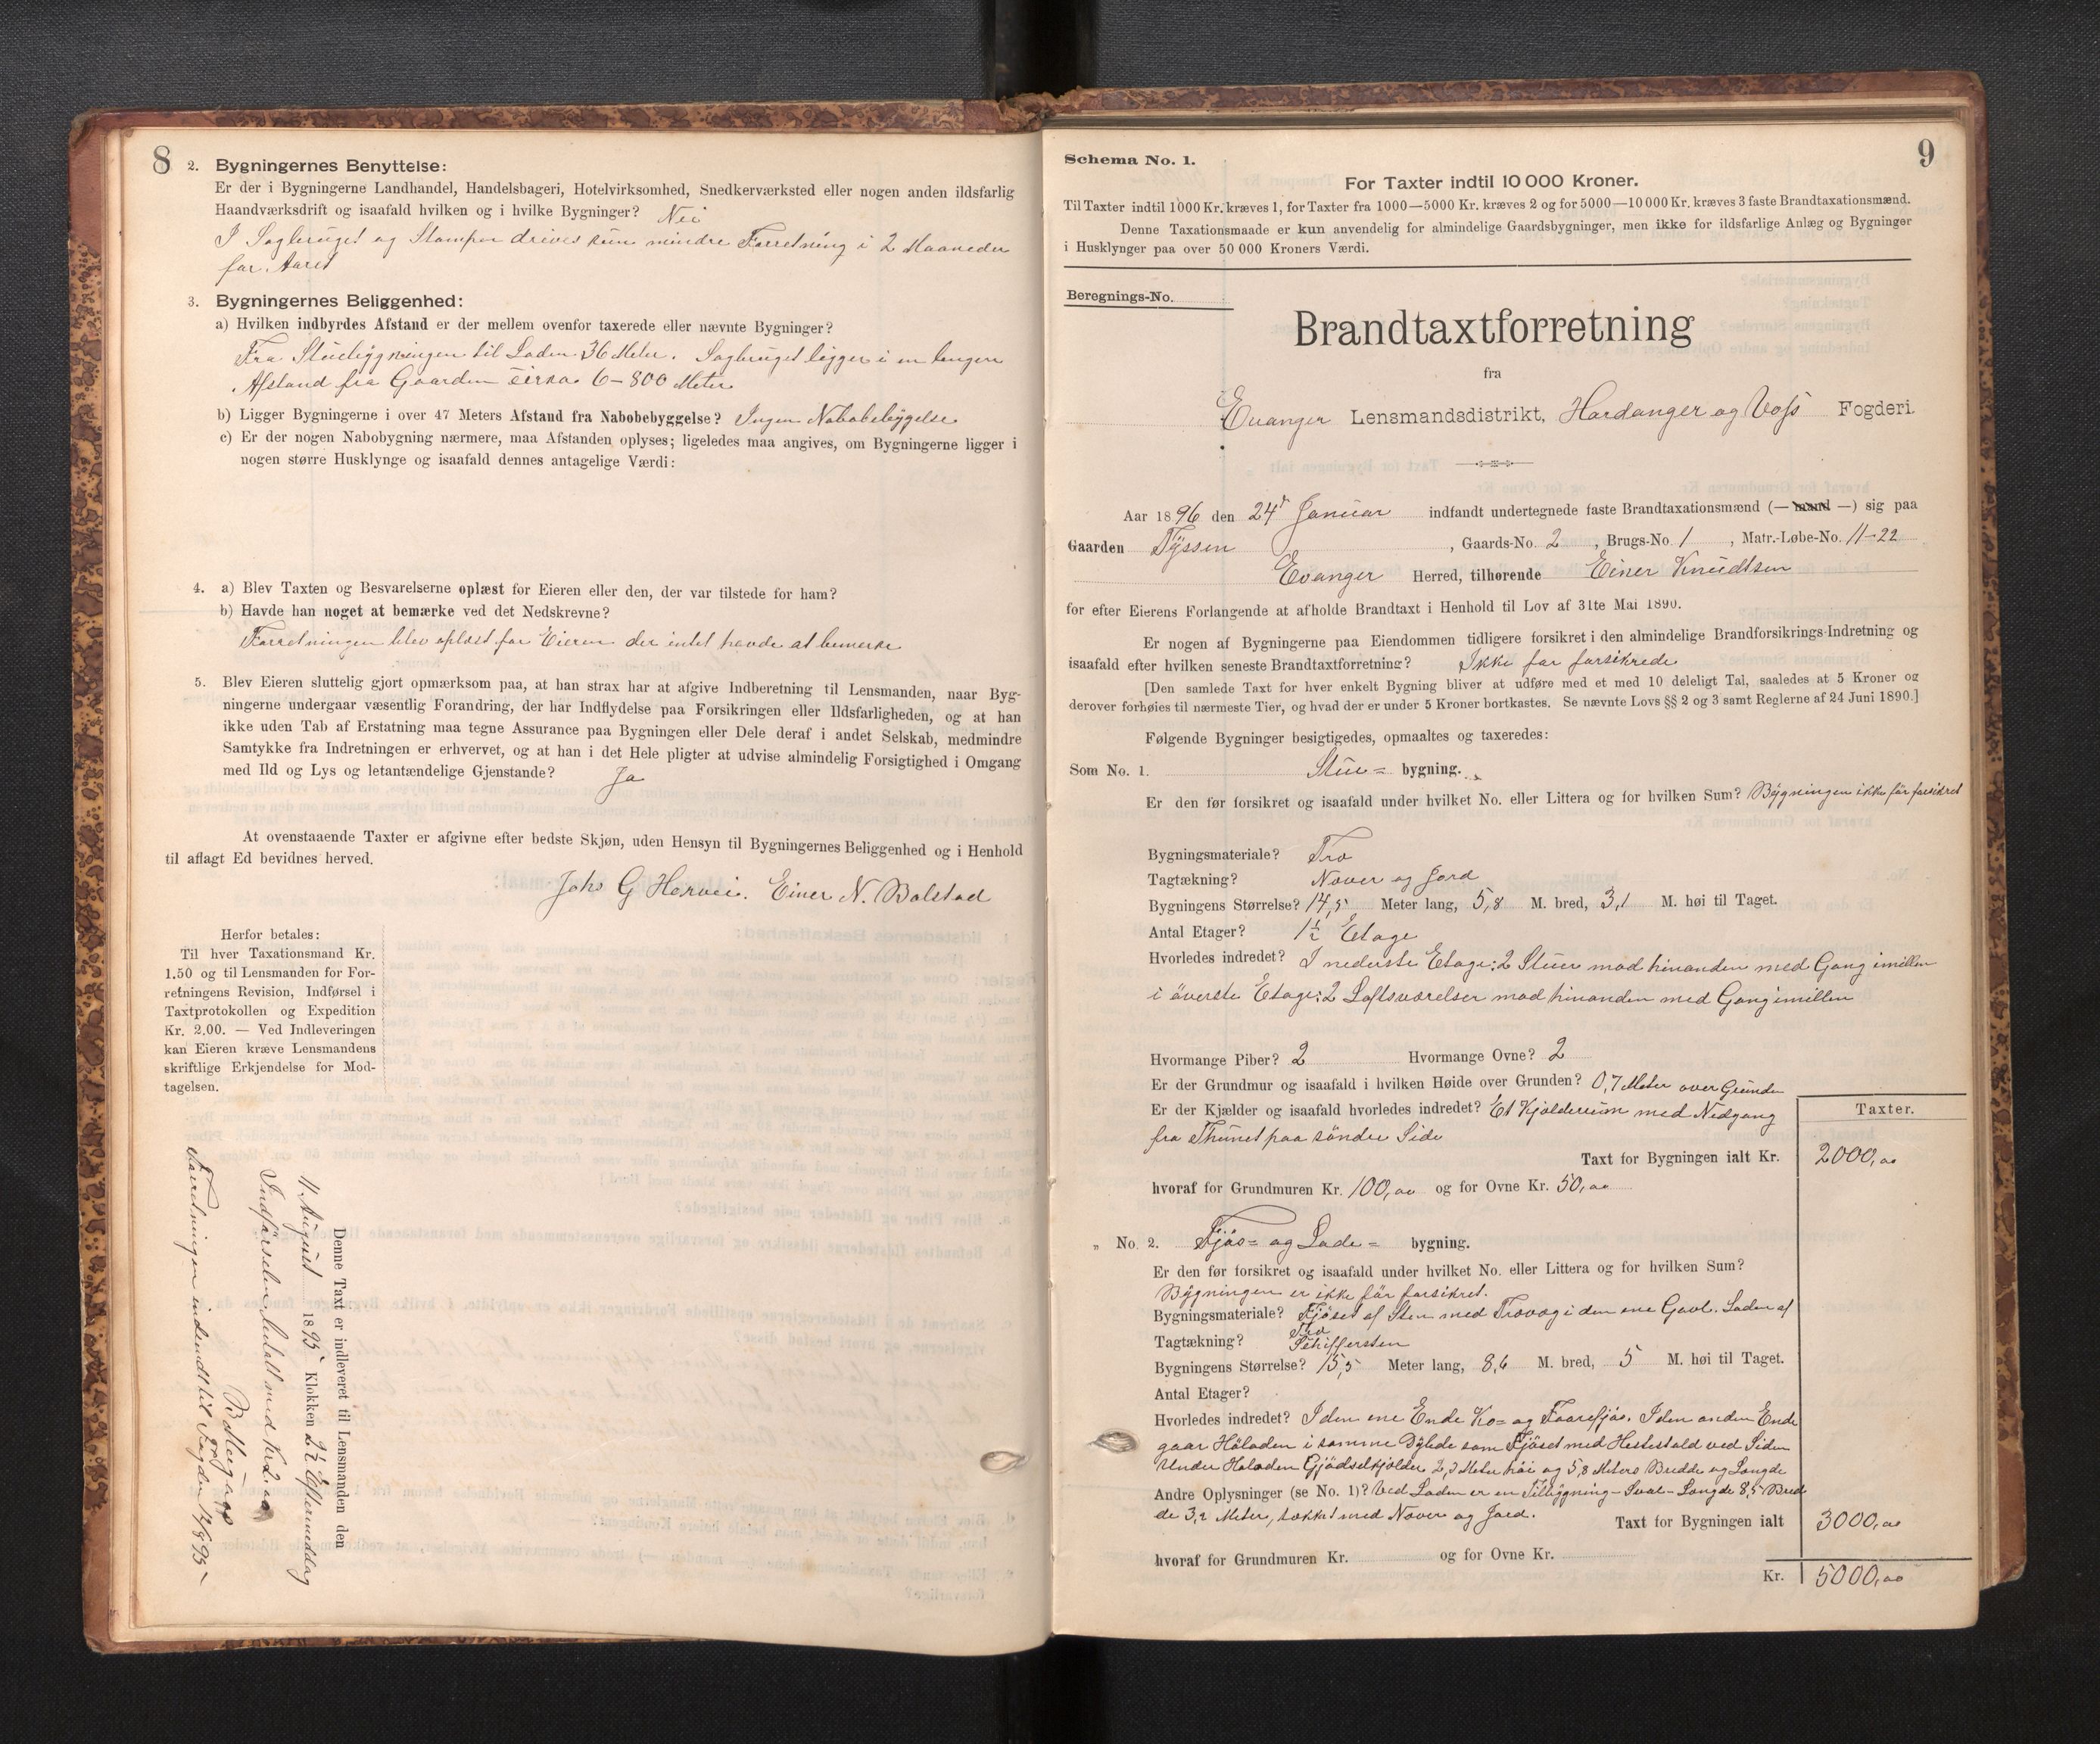 8
2. Bygningernes Benyttelse:
Er der i Bygningerne Landhandel, Handelsbageri, Hotelvirksomhed, Snedkerværksted eller nogen anden ildsfarlig
Haandværksdrift og isaafald hvilken og i hvilke Bygninger? Nei
I Sagbruget og Stampen drives kun mindre Forretning i 2 Maaneder
for Aaret
3. Bygningernes Beliggenhed:
a) Hvilken indbyrdes Afstand er der mellem ovenfor taxerede eller nævnte Bygninger?
Fra Stuebygningen til Laden 36 Meter. Sagbruget ligger i en lengere
Afstand fra Gaarden cirka 6-800 Meter
b) Ligger Bygningerne i over 47 Meters Afstand fra Nabobebyggelse? Ingen Nabobebyggelse
c) Er der nogen Nabobygning nærmere, maa Afstanden oplyses; ligeledes maa angives, om Bygningerne ligger i
nogen større Husklynge og isaafald dennes antagelige Værdi:
4. a) Blev Taxten og Besvarelserne oplæst for Eieren eller den, der var tilstede for ham?
b) Havde han noget at bemærke ved det Nedskrevne?
Forretningen blev oplæst for Eieren der intet havde at bemerke
5. Blev Eieren sluttelig gjort opmærksom paa, at han strax har at afgive Indberetning til Lensmanden, naar Byg-
ningerne undergaar væsentlig Forandring, der har Indflydelse paa Forsikringen eller Ildsfarligheden, og at han
ikke uden Tab af Erstatning maa tegne Assurance paa Bygningen eller Dele deraf i andet Selskab, medmindre
Samtykke fra Indretningen er erhvervet, og at han i det Hele pligter at udvise almindelig Forsigtighed i Omgang
med Ild og Lys og letantændelige Gjenstande? Ja
At ovenstaaende Taxter er afgivne efter bedste Skjøn, uden Hensyn til Bygningernes Beliggenhed og i Henhold
til aflagt Ed bevidnes herved.
Johs G Horvei. Einer N. Bolstad
Herfor betales:
Til hver Taxationsmand Kr.
1.50 og til Lensmanden for For-
retningens Revision, Indførsel i
Taxtprotokollen og Expedition
Kr. 2.00. — Ved Indleveringen
kan Eieren kræve Lensmandens
skriftlige Erkjendelse for Mod-
tagelsen.
Denne Taxt er indleveret til Lensmanden den
11 August 1895 Klokken 2½ Eftermiddag
Indførselen betalt med Kr 2,00
Forretningen indsendt til Fogden 12/8 95
Schema No. 1.
9
For Taxter indtil 10 000 Kroner.
Til Taxter indtil 1000 Kr. kræves 1, for Taxter fra 1000—5000 Kr. kræves 2 og for 5000—10 000 Kr. kræves 3 faste Brandtaxationsmænd.
Denne Taxationsmaade er kun anvendelig for almindelige Gaardsbygninger, men ikke for ildsfarlige Anlæg og Bygninger
i Husklynger paa over 50 000 Kroners Værdi.
Beregnings-No.
Brandtaxtforretning
fra
Evanger Lensmandsdistrikt, Hardanger og Voss Fogderi.
Aar 1896 den 24de Januar indfandt undertegnede faste Brandtaxationsmænd (— mand —) sig paa
Gaarden Tyssen, Gaards-No. 2, Brugs-No. 1, Matr.-Løbe-No. 11-22
Evanger Herred, tilhørende Einer Knudtsen
for efter Eierens Forlangende at afholde Brandtaxt i Henhold til Lov af 31te Mai 1890.
Er nogen af Bygningerne paa Eiendommen tidligere forsikret i den almindelige Brandforsikrings-Indretning og
isaafald efter hvilken seneste Brandtaxtforretning? Ikke før forsikrede
[Den samlede Taxt for hver enkelt Bygning bliver at udføre med et med 10 deleligt Tal, saaledes at 5 Kroner og
derover forhøies til nærmeste Tier, og hvad der er under 5 Kroner bortkastes. Se nævnte Lovs §§ 2 og 3 samt Reglerne af 24 Juni 1890.]
Følgende Bygninger besigtigedes, opmaaltes og taxeredes:
Som No. 1. Stue= bygning.
Er den før forsikret og isaafald under hvilket No. eller Littera og for hvilken Sum? Bygningen ikke før forsikret
Bygningsmateriale? Træ
Tagtækning? Næver og Jord
Bygningens Størrelse? 14,5 Meter lang, 5,8 M. bred, 3,1 M. høi til Taget.
Antal Etager? 1½ Etage
Hvorledes indredet? I nederste Etage: 2 Stuer mod hinanden med Gang imellem
i øverste Etage: 2 Loftsværelser mod hinanden med Gang imellem
Hvormange Piber? 2 Hvormange Ovne? 2
Er der Grundmur og isaafald i hvilken Høide over Grunden? 0,7 Meter over Grunden
Er der Kjælder og isaafald hvorledes indredet? Et Kjælderrum med Nedgang
fra Thunet paa søndre Side
Taxter.
Taxt for Bygningen ialt Kr. 2000,00
hvoraf for Grundmuren Kr. 100,00 og for Ovne Kr. 50,00
„ No. 2. Fjøs= og Lade= bygning.
Er den før forsikret og isaafald under hvilket No. eller Littera og for hvilken Sum?
Bygningen er ikke før forsikret.
Bygningsmateriale? Fjøset af Sten med Trævæg i den ene Gavl. Laden af
Træ
Tagtækning? Skiffersten
Bygningens Størrelse? 15,5 Meter lang, 8,6 M. bred, 5 M. høi til Taget.
Antal Etager?
Hvorledes indredet? I den ene Ende Ko= og Faarefjøs. I den anden Ende
gaar Høladen i samme Dybde som Fjøset med Hestestald ved Siden
Under Høladen Gjødselkjælder 2,3 Meter høi og 5,8 Meters Bredde og Længde
Andre Oplysninger (se No. 1)? Ved Laden er en Tilbygning – Sval – Længde 8,5 Bred
de 3,2 Meter, tækket med Næver og Jord.
Taxt for Bygningen ialt 3000,00
hvoraf for Grundmuren Kr. og for Ovne Kr.
Kr. 5000,00